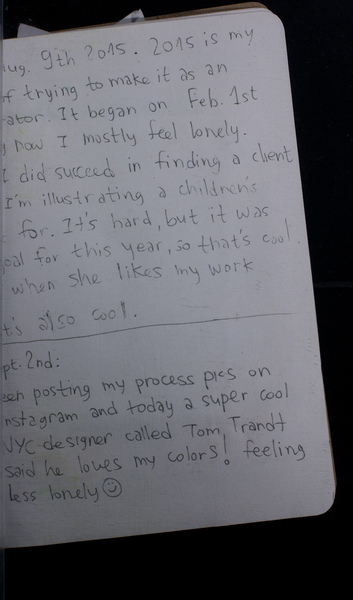 ug. 9th 2015. 2015 is my
f trying to make it as an
ator. It began on Feb. 1st
now I mostly feel lonely.
I did succeed in finding a client
I'm illustrating a children's
for. It's hard, but it was
oal for this year, so that's cool.
when she likes my work
t's also cool.
pt. 2nd:
een posting my process pics on
nstagram and today a super cool
NYC designer called Tom Trandt
said he loves my colors! feeling
less lonely ☺